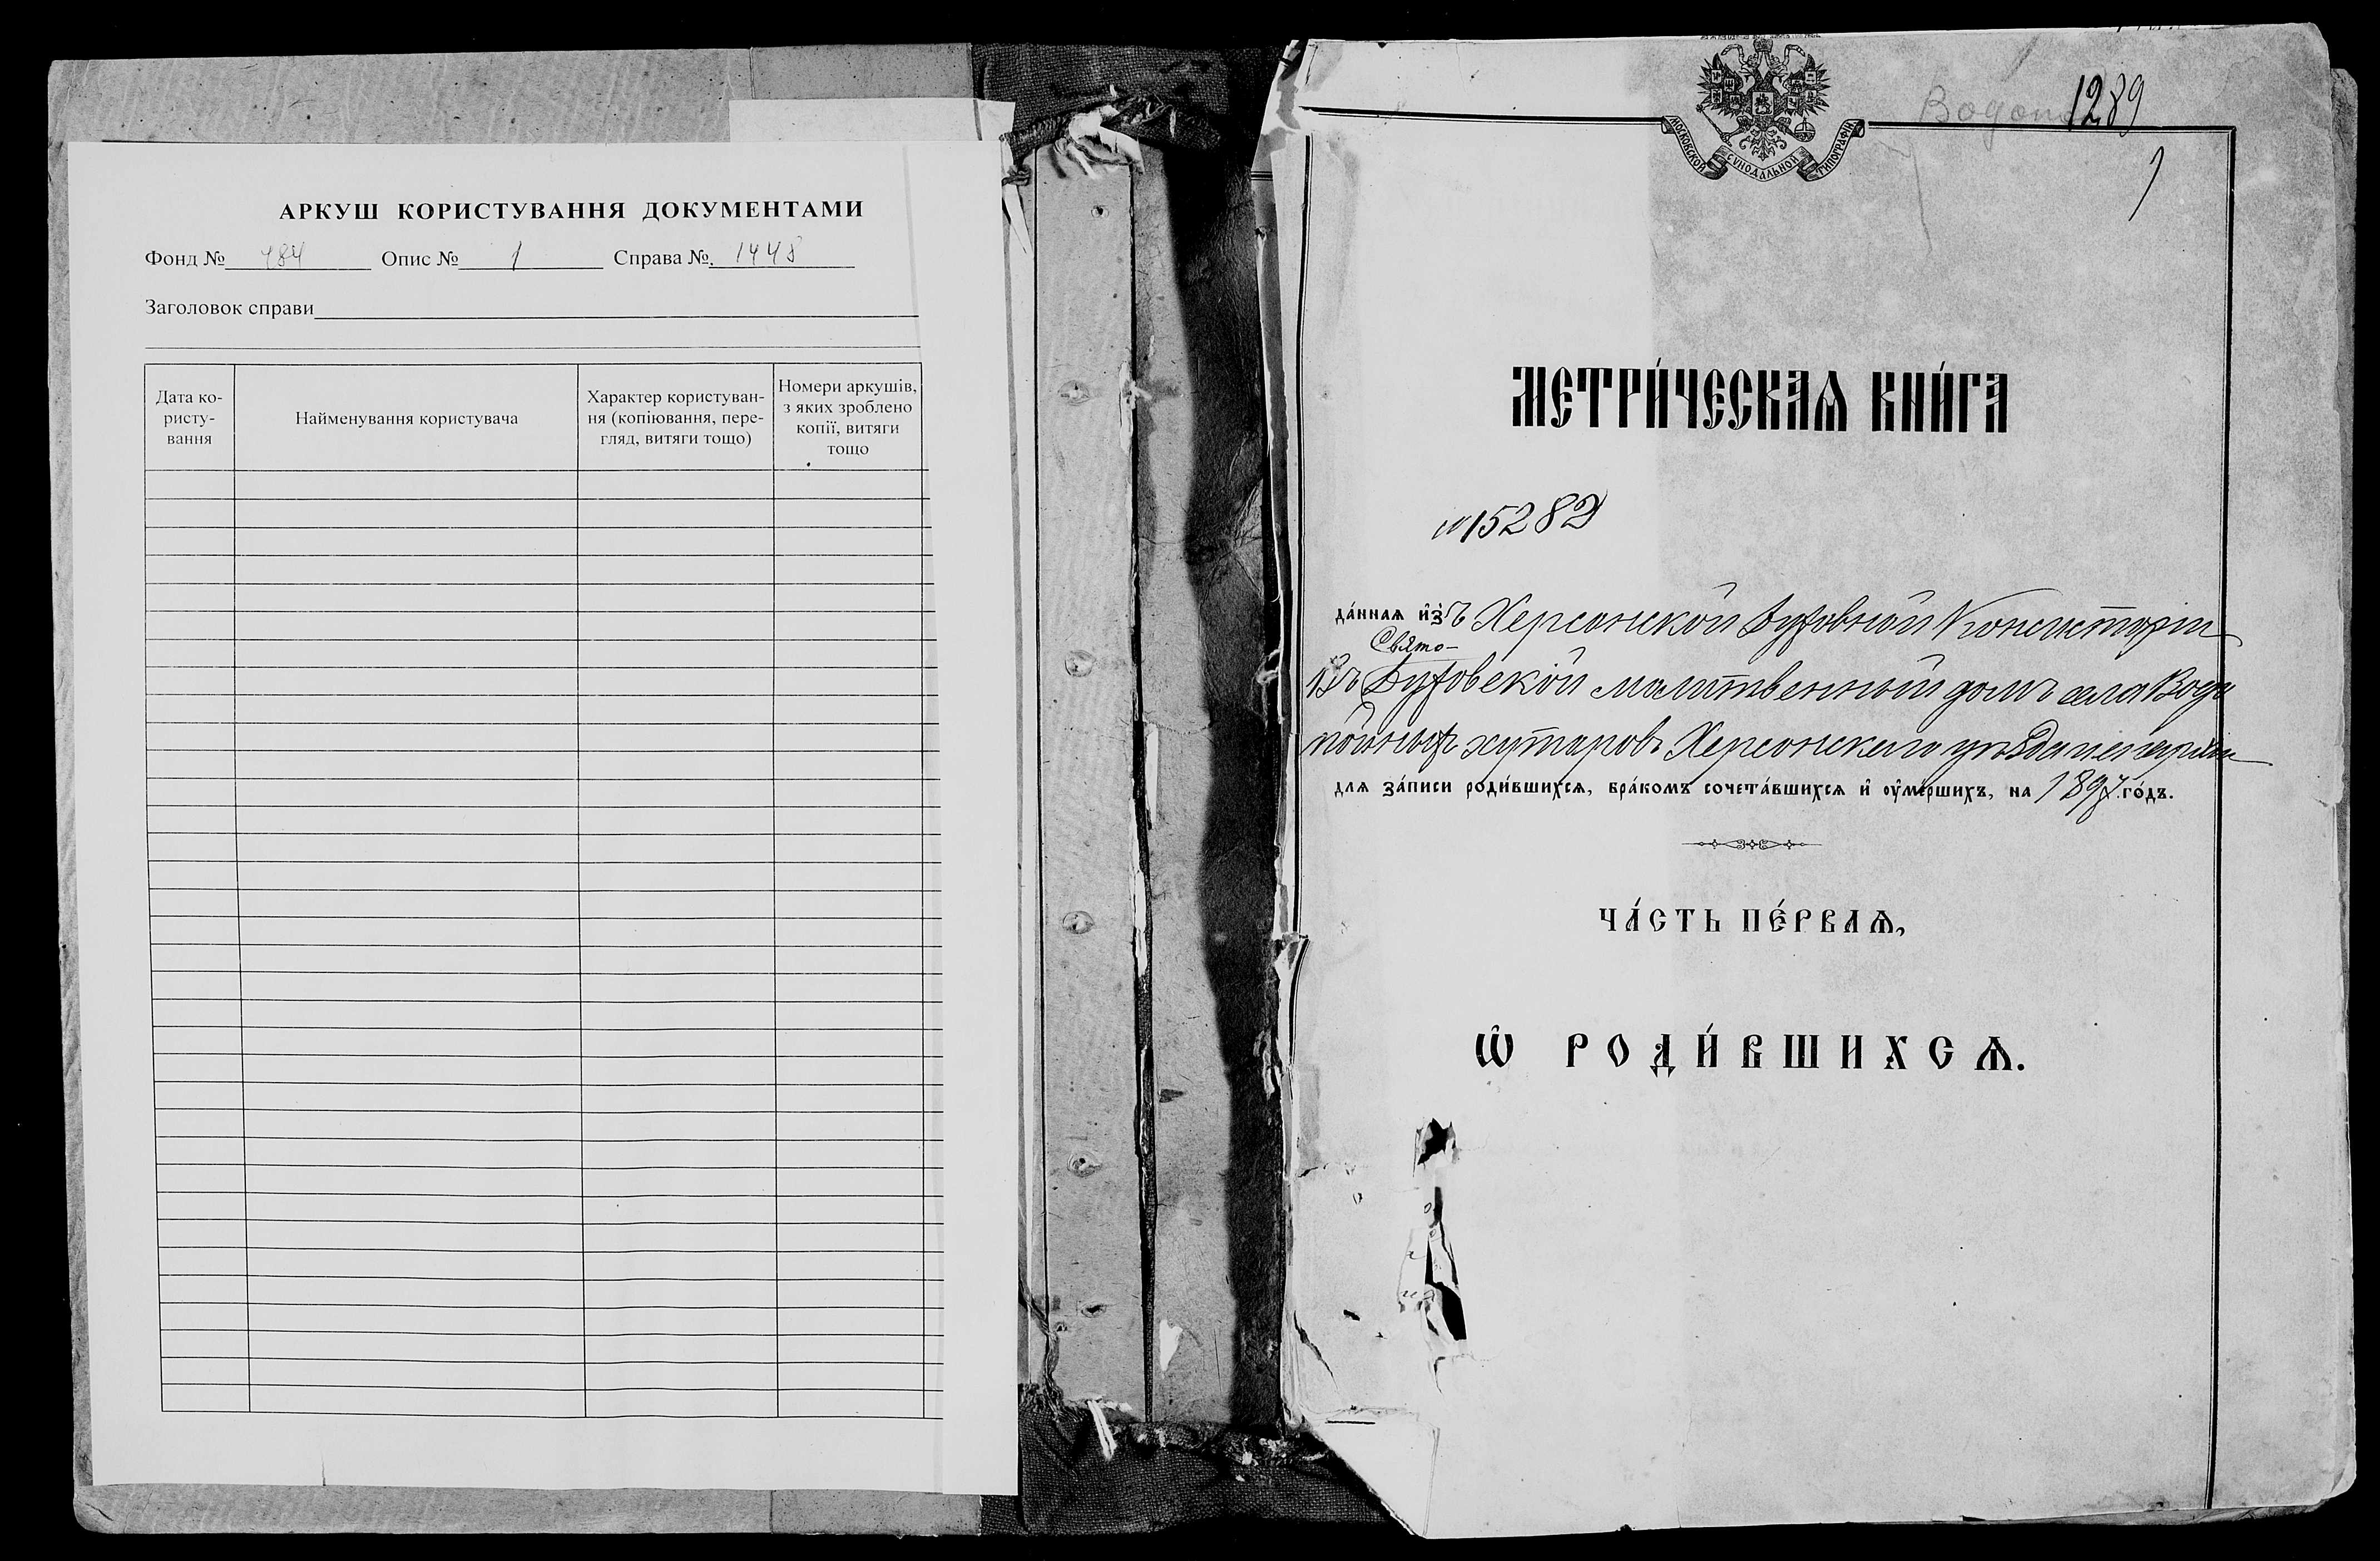 АРКУШ КОРИСТУВАННЯ ДОКУМЕНТАМИ
Фонд № 484 Опис № 1 Справа №. 1448
Заголовок справи
Дата ко-
ристу-
вання
Найменування користувача
Характер користуван-
ня (копіювання, пере-
гляд, витяги тощо)
Номери аркушів,
з яких зроблено
копії, витяги
тощо
МОСКОВСКОЙ СУНОДАЛЬНОЙ ТИПОГРАФІИ
1289
1
МЕТРИ́ЧЕСКАѦ КНИ́ГА
№ 15282
да́ннаѧ и҆зъ Херсонской Духовной Консисторіи
Свято-
Въ Духовской молитвенный домъ села Водо
пойныхъ хуторовъ Херсонскаго уѣзда
длѧ за́писи роди́вшихсѧ, бра́комъ сочета́вшихсѧ и҆ ѹ҆ме́ршихъ, на 1897 го́дъ.
ЧА́СТЬ ПЕ́РВАѦ,
Ѡ҆ РОДИ́ВШИХСѦ.